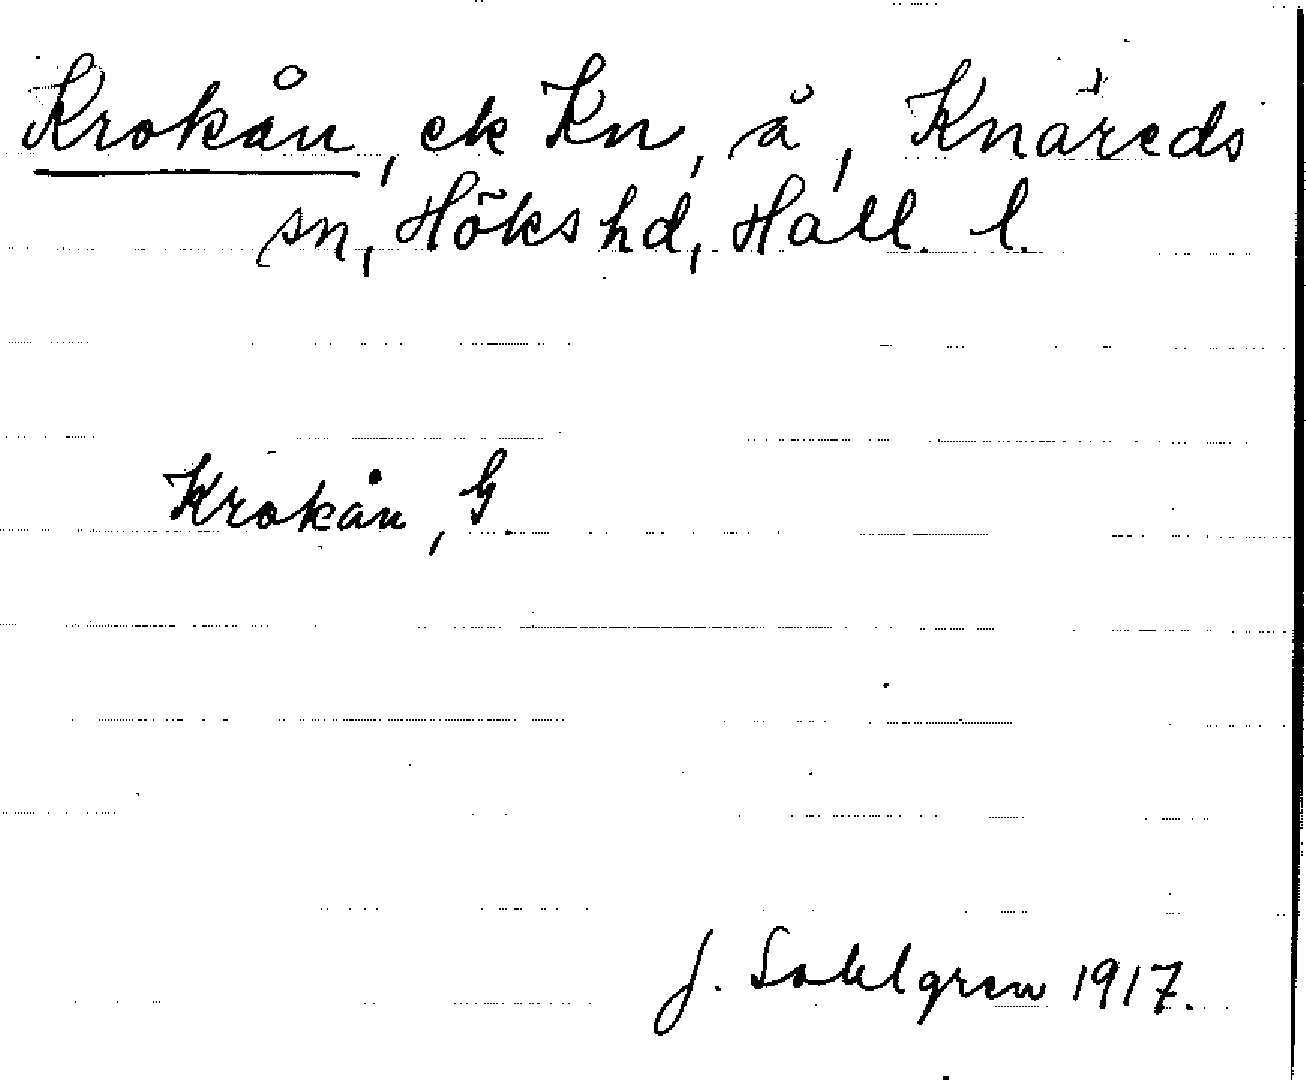 Krokån, ek Kn, å, Knäreds
sn, Höks hd, Hall. l.
Krokån, G.
J. Sahlgren 1917.